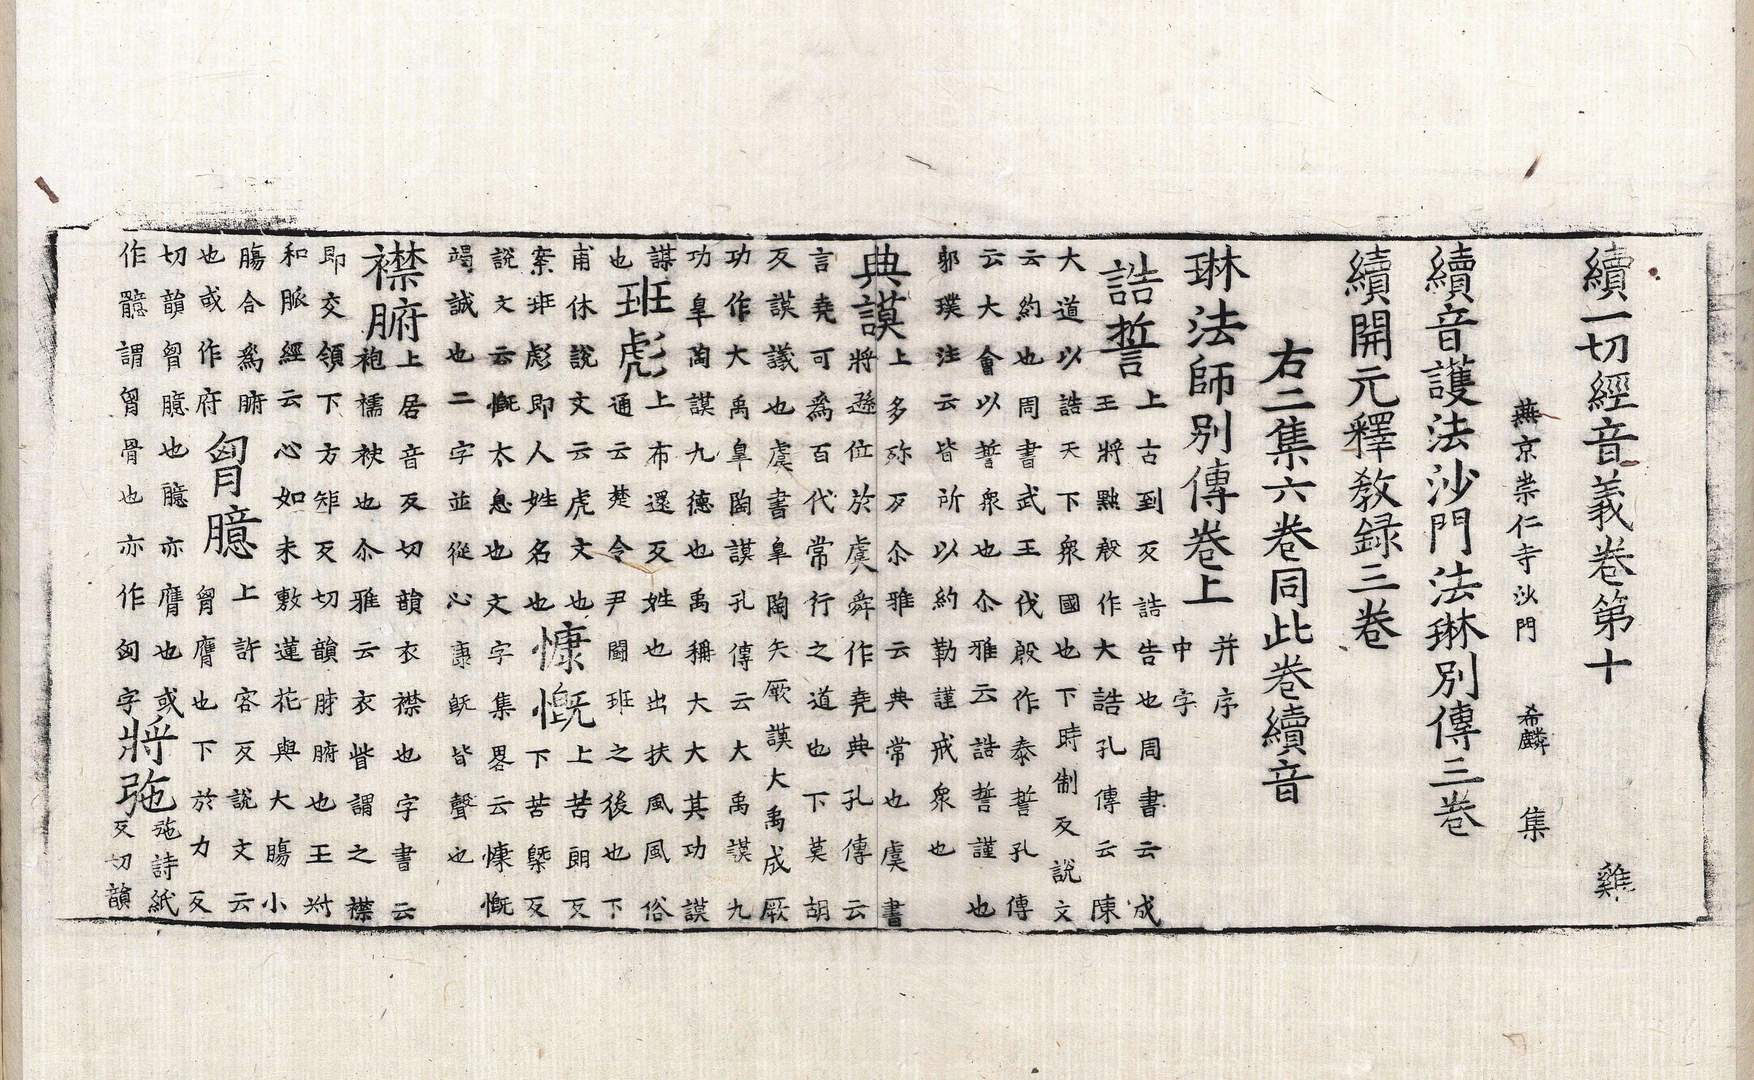 續一切經音義卷第十　雞
燕京崇仁寺沙門　希麟　集
續音護法沙門法琳別傳三卷
續開元釋教録三卷
右二集六卷同此卷續音
琳法師別傳卷上
并序
中字
誥誓
上古到反誥告也周書云成
王將黜殷作大誥孔傳云陳
大道以誥天下衆國也下時制反說文
云約也周書武王伐殷作泰誓孔傳
云大會以誓衆也尒雅云誥誓謹也
郭璞注云皆所以約勒謹戒衆也
典謨
上多殄反尒雅云典常也虞書
將遜位於虞舜作堯典孔傳云
言堯可爲百代常行之道也下莫胡
反謨議也虞書臯陶矢厥謨大禹成厥
功作大禹臯陶謨孔傳云大禹謨九
功臯陶謨九德也禹稱大大其功謨
謀也
班彪
上布還反姓也出扶風風俗
通云楚令尹鬪班之後也下
甫休說文云虎文也
慷慨
上苦朗反
下苦槩反
案班彪即人姓名也
說文云慨太息也文字集畧云慷慨
竭誠也二字並從心康旣皆聲也
襟腑
上居音反切韻衣襟也字書云
袍襦袂也尒雅云衣眥謂之襟
即交領下方矩反切韻胕腑也王㳔
和脈經云心如未敷蓮花與大膓小
膓合爲腑也或作府
匈臆
上許容反說文云
匈膺也下於力反
切韻匈臆也臆亦膺也或
作臆謂匈骨也亦作匈字
將弛
弛詩紙
反切韻